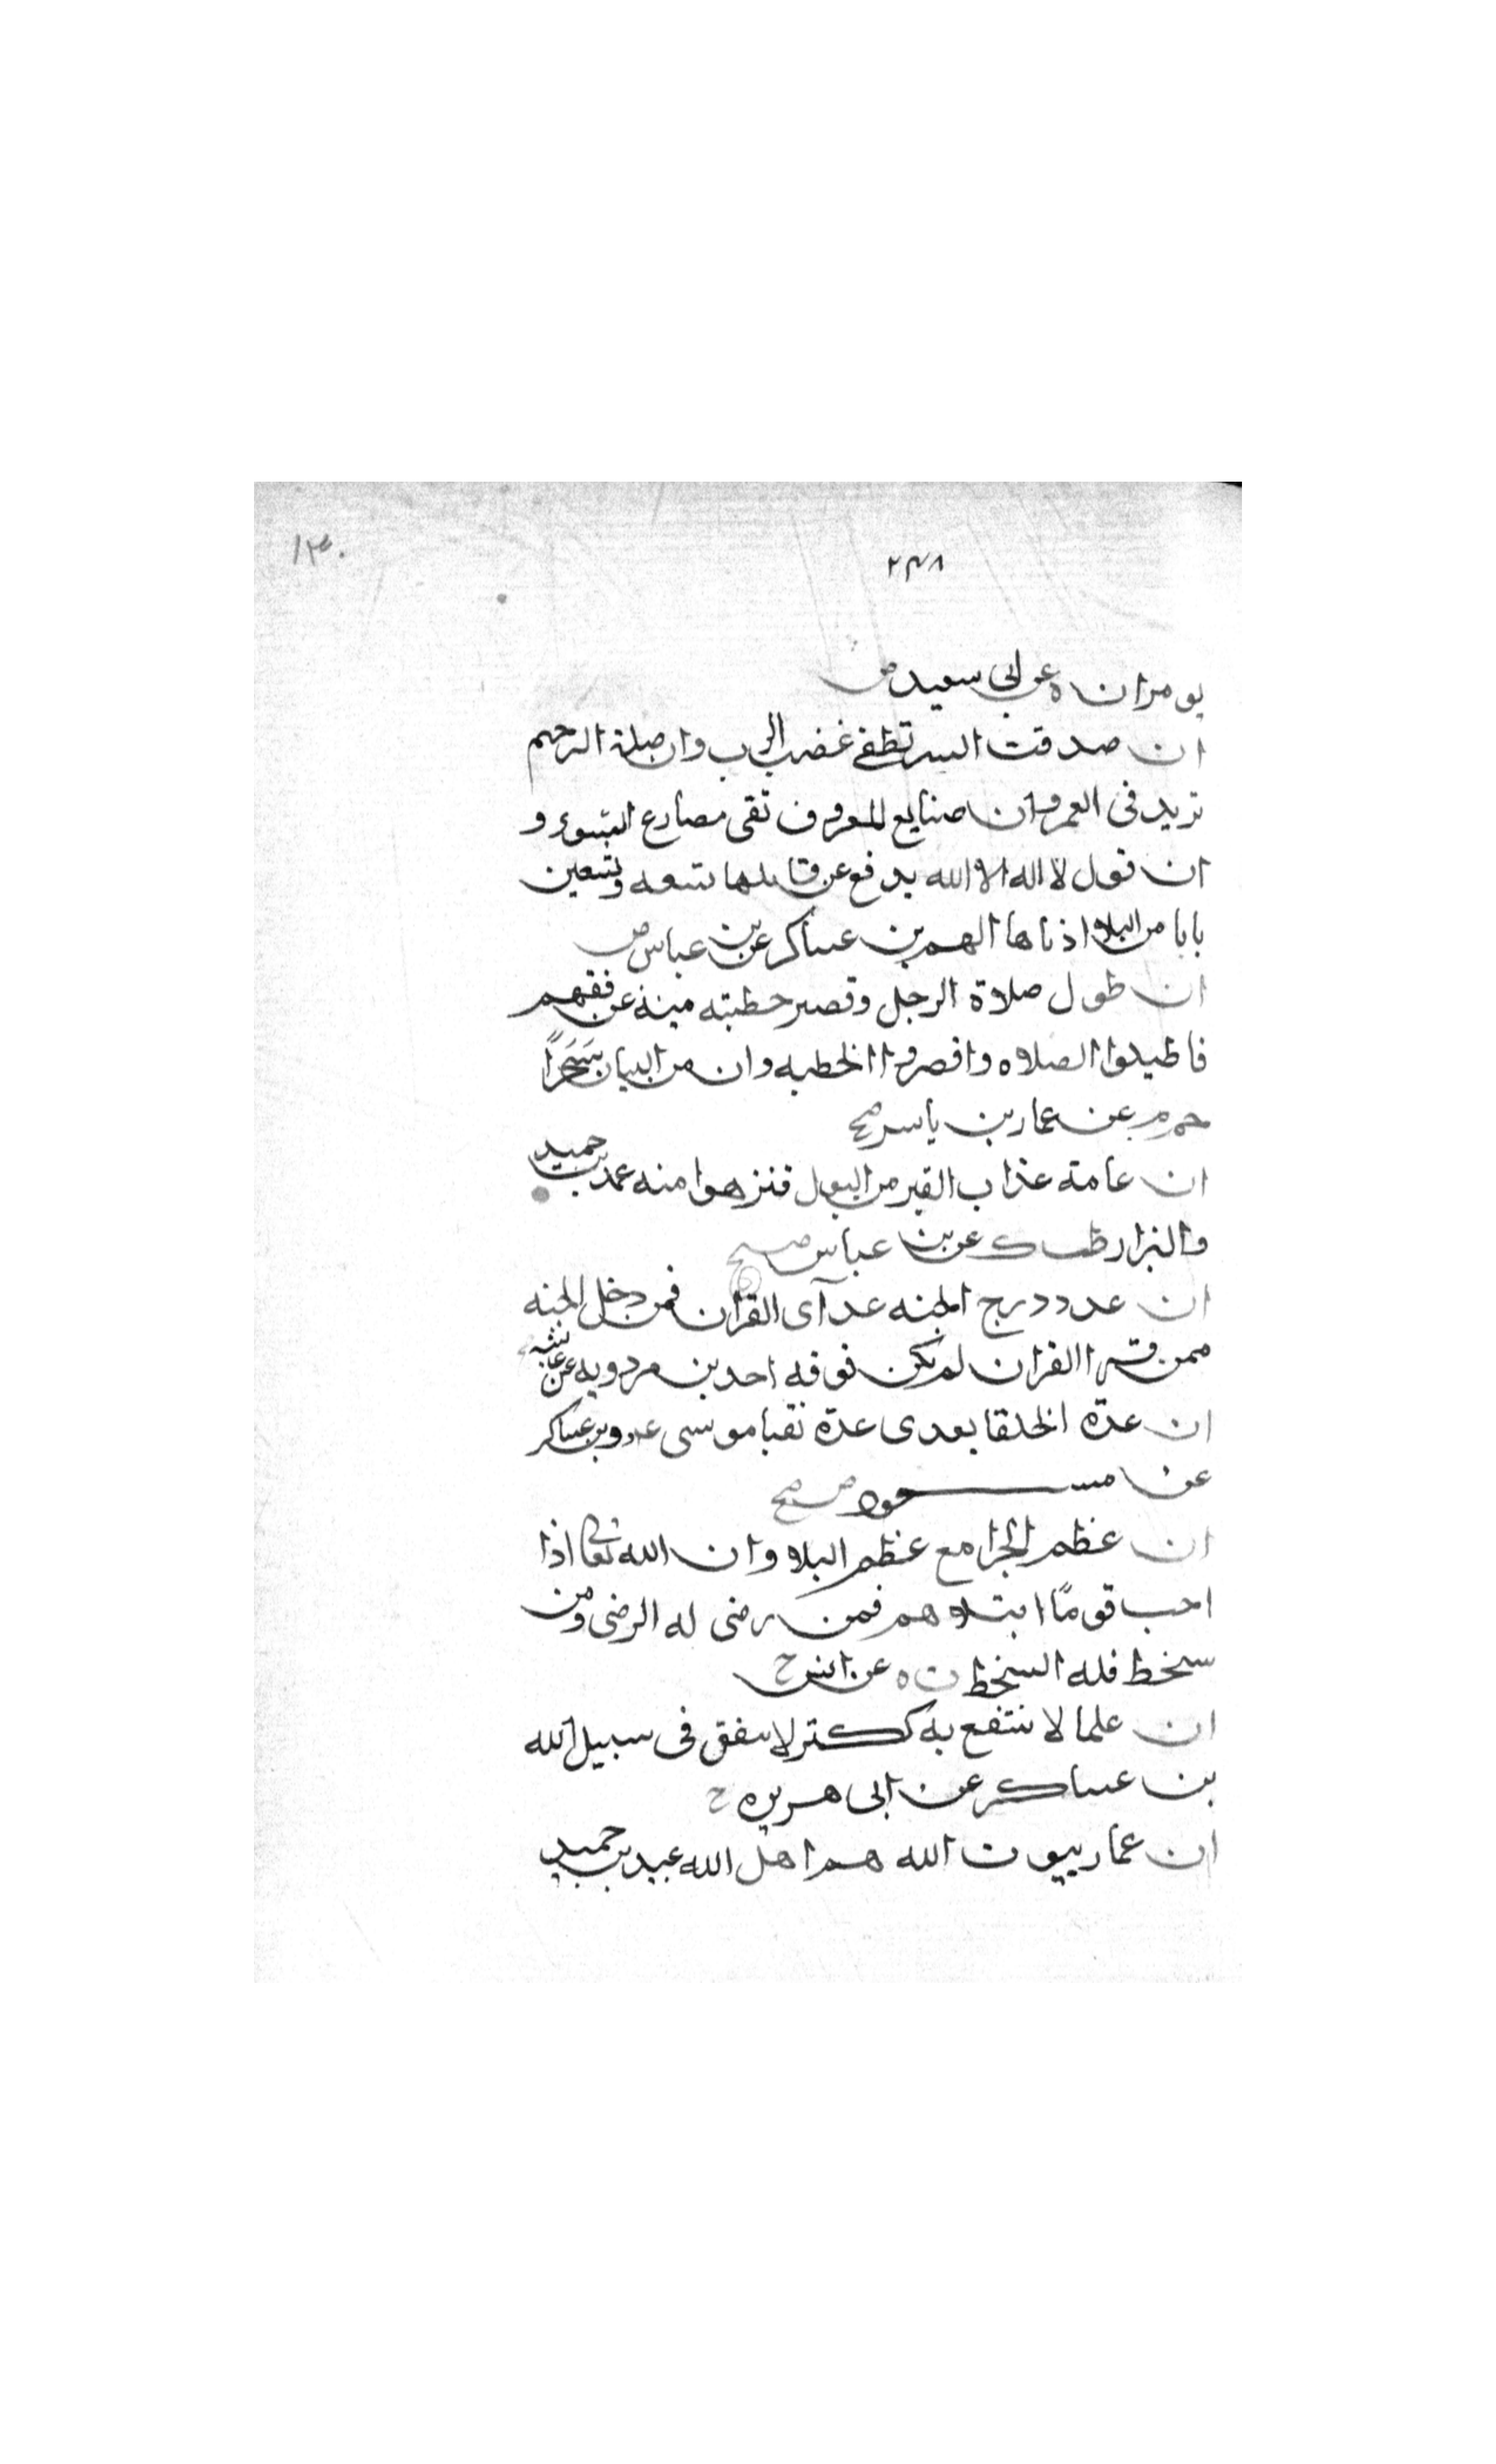 ١٣٠
٢٣٨
يومران ه عن ابى سعيد ض
ان صدقت السر تطفى غضب الرب وان صلة الرحم
تزيد فى العمر وان صنايع المعروف تقى مصارع السوء و
ان قول لا اله الا الله يدفع عن قايلها تسعه وتسعين
بابا من البلاء ادناها الهم بن عساكر عن بن عباس ض
ان طول صلاة الرجل وقصر خطبته مينة عن فقهه
فاطيلوا الصلاه واقصروا الخطبه وان من البيان سحرًا
حم م عن عمار بن ياسر صح
ان عامة عذاب القبر من البول فتنزهوا منه عبد بن حميد
والبزار طب ك عن بن عباس صح
ان عدد درج الجنه عد آى القران فمن دخل الجنه
ممن قرا القران لم يكن فوقه احد بن مردويه عن عايشه
ان عدة الخلفا بعدى عدة نقبا موسى عد وبن عساكر
عن مسعود صح
ان عظم الجزا مع عظم البلاء وان الله تعالى اذا
احب قومًا ابتلاهم فمن رضى له الرضى ومن
سخط فله السخط ت ه عن انس ح
ان علما لا ينتفع به ككنز لا ينفق فى سبيل الله
بن عساكر عن ابى هريره ح
ان عمار بيوت الله هم اهل الله عبيد بن حميد